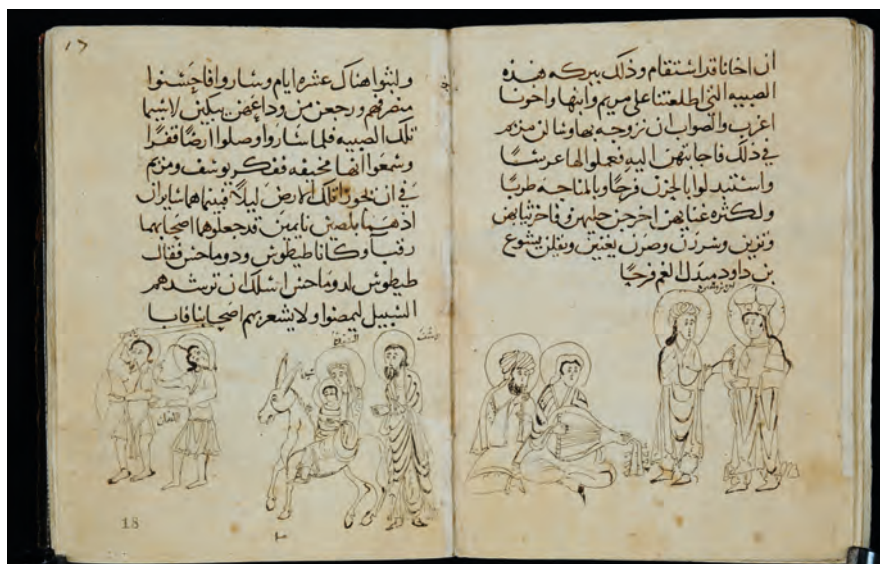 ان اخانا قد استقام وذلك ببركه هذه
الصبيه التي اطلعتنا على مريم وابنها واخونا
اعزب والصواب ان نزوجه بها وسالن مريم
في ذلك فاجابتهن اليه فعملوا لها عرسًا
واستبدلوا بالحزن فرحًا وبالمناحه طربًا
ولكثره غنايهن اخرجن حليهن وفاخر ثيابهن
وتزين وسررن وصرن يغنين ويقلن يشوع
بن داود مبدل الغم فرحًا
١٦
ولبثوا هناك عشره ايام وساروا فاحسنوا
منصرفهم ورجعن من وداعهن يبكين لاسيما
تلك الصبيه فلما ساروا وصلوا ارضًا قفرًا
وسمعوا انها مخيفه ففكر يوسف ومريم
في ان يجوزا تلك الارض ليلاً فبينما هما سايران
اذ هما بلصين نايمين قد جعلوهما اصحابهما
رقبا وكانا طيطوس ودوماحس فقال
طيطوس لدوماحس اسلك ان ترشدهم
السبيل ليمضوا ولا يشعر بهم اصحابنا فابا
يوسف
اللصان
18